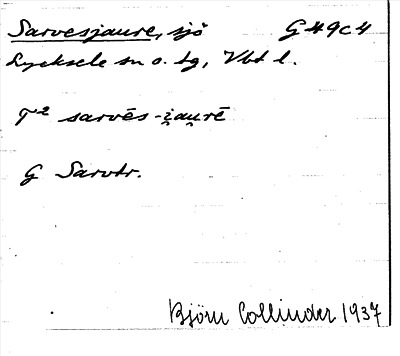 Sarvesjaure, sjö G49c4
Lycksele sn o. tg, Vbt l.
T² sarvēs-i̯au̯rē
G Sarvtr.
Björn Collinder 1937